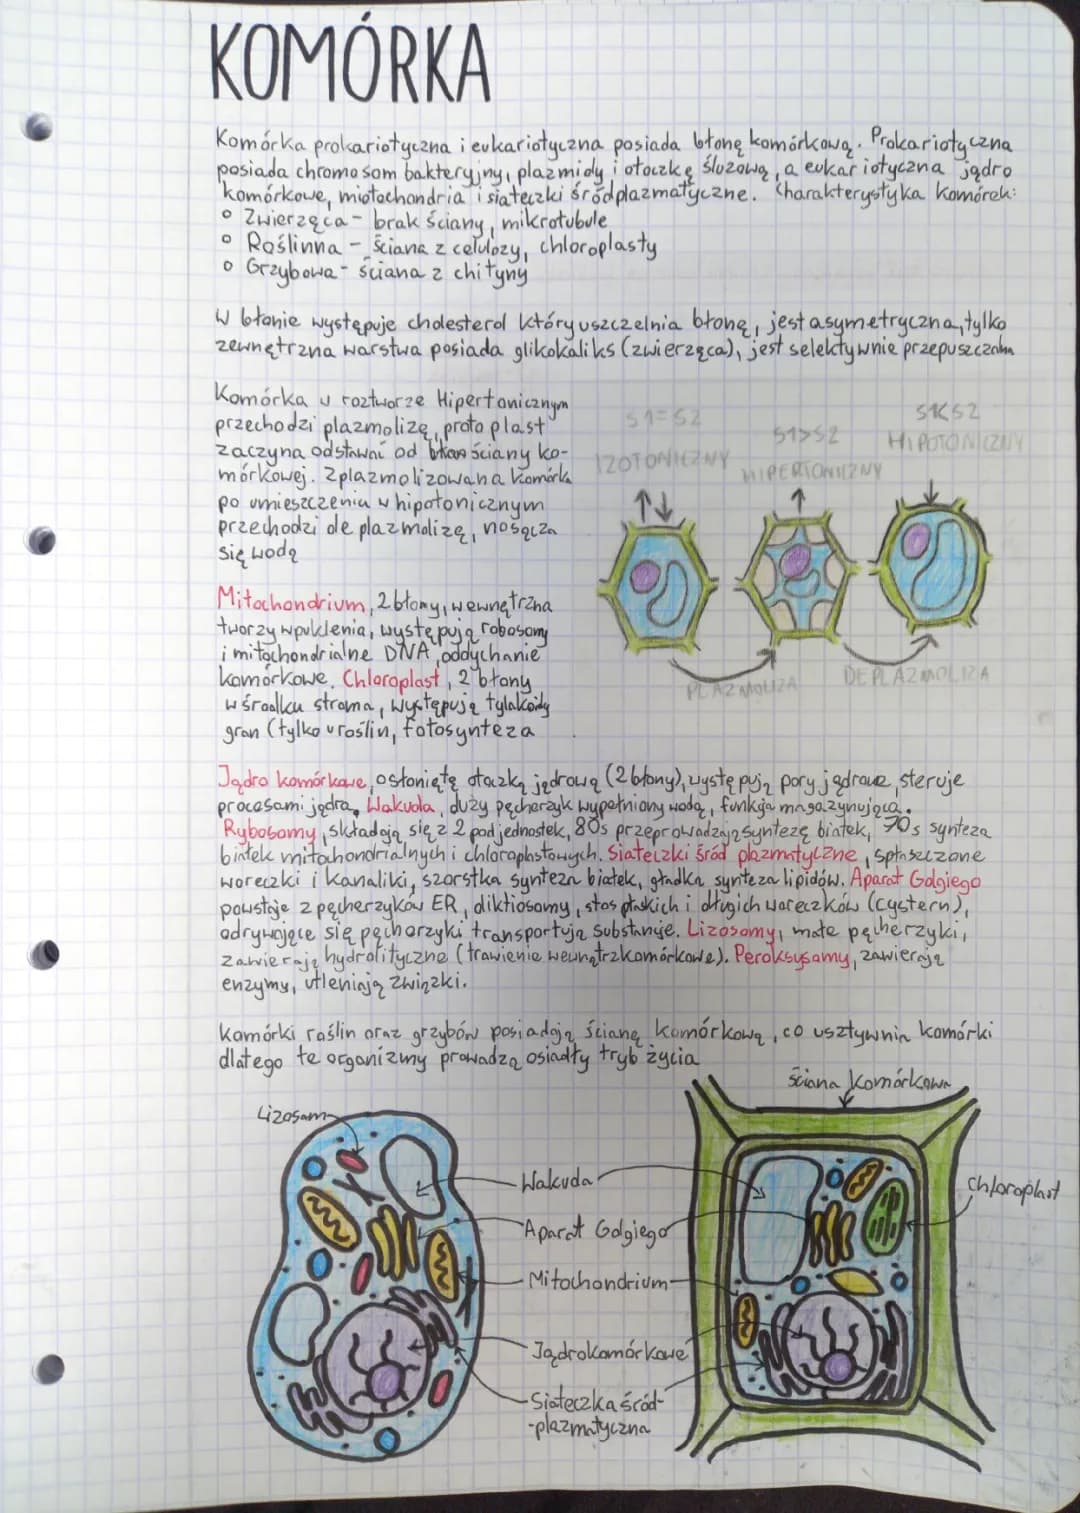 KOMÓRKA
Komórka prokariotyczna i eukariotyczna posiada błonę komórkową. Prokariotyczna
posiada chromosom bakteryjny, plazmidy i otoczkę śluzową, a eukariotyczna jądro
komórkowe, mitochondria i siateczki śródplazmatyczne. Charakterystyka komórek:
° Zwierzęca - brak ściany, mikrotubule
° Roślinna - ściana z celulozy, chloroplasty
° Grzybowa - ściana z chityny
W błonie występuje cholesterol który uszczelnia błonę, jest asymetryczna, tylko
zewnętrzna warstwa posiada glikokaliks (zwierzęca), jest selektywnie przepuszczalna
Komórka w roztworze Hipertonicznym
przechodzi plazmolizę, protoplast
zaczyna odstawać od ściany ko-
mórkowej. Zplazmolizowana komórka
po umieszczeniu w hipotonicznym
przechodzi deplazmolizę, nasącza
się wodą
S1=S2
IZOTONICZNY
S1>S2
HIPERTONICZNY
S1<S2
HIPOTONICZNY
PLAZMOLIZA
DEPLAZMOLIZA
Mitochondrium, 2 błony, wewnętrzna
tworzy wpuklenia, występują robosomy
i mitochondrialne DNA, oddychanie
komórkowe. Chloroplast, 2 błony
w środku stroma, występują tylakoidy
gran (tylko u roślin, fotosynteza
Jądro komórkowe, osłonięte otoczką jądrową (2 błony), występują pory jądrowe, steruje
procesami jądra, Wakuola, duży pęcherzyk wypełniony wodą, funkcja magazynująca.
Rybosomy, składają się z 2 podjednostek, 80s przeprowadzają syntezę białek, 70s synteza
białek mitochondrialnych i chloroplastowych. Siateczki śródplazmatyczne, spłaszczone
woreczki i kanaliki, szorstka synteza białek, gładka synteza lipidów. Aparat Golgiego
powstaje z pęcherzyków ER, diktiosomy, stos płaskich i długich woreczków (cystern),
odrywające się pęcherzyki transportują substancje. Lizosomy, małe pęcherzyki,
zawierają hydrolityczne (trawienie wewnątrzkomórkowe). Peroksysomy, zawierają
enzymy, utleniają związki.
Komórki roślin oraz grzybów posiadają ścianę komórkową, co usztywnia komórki
dlatego te organizmy prowadzą osiadły tryb życia
ściana komórkowa
Lizosom
Wakuola
Chloroplast
Aparat Golgiego
Mitochondrium
Jądro komórkowe
Siateczka śród-
-plazmatyczna